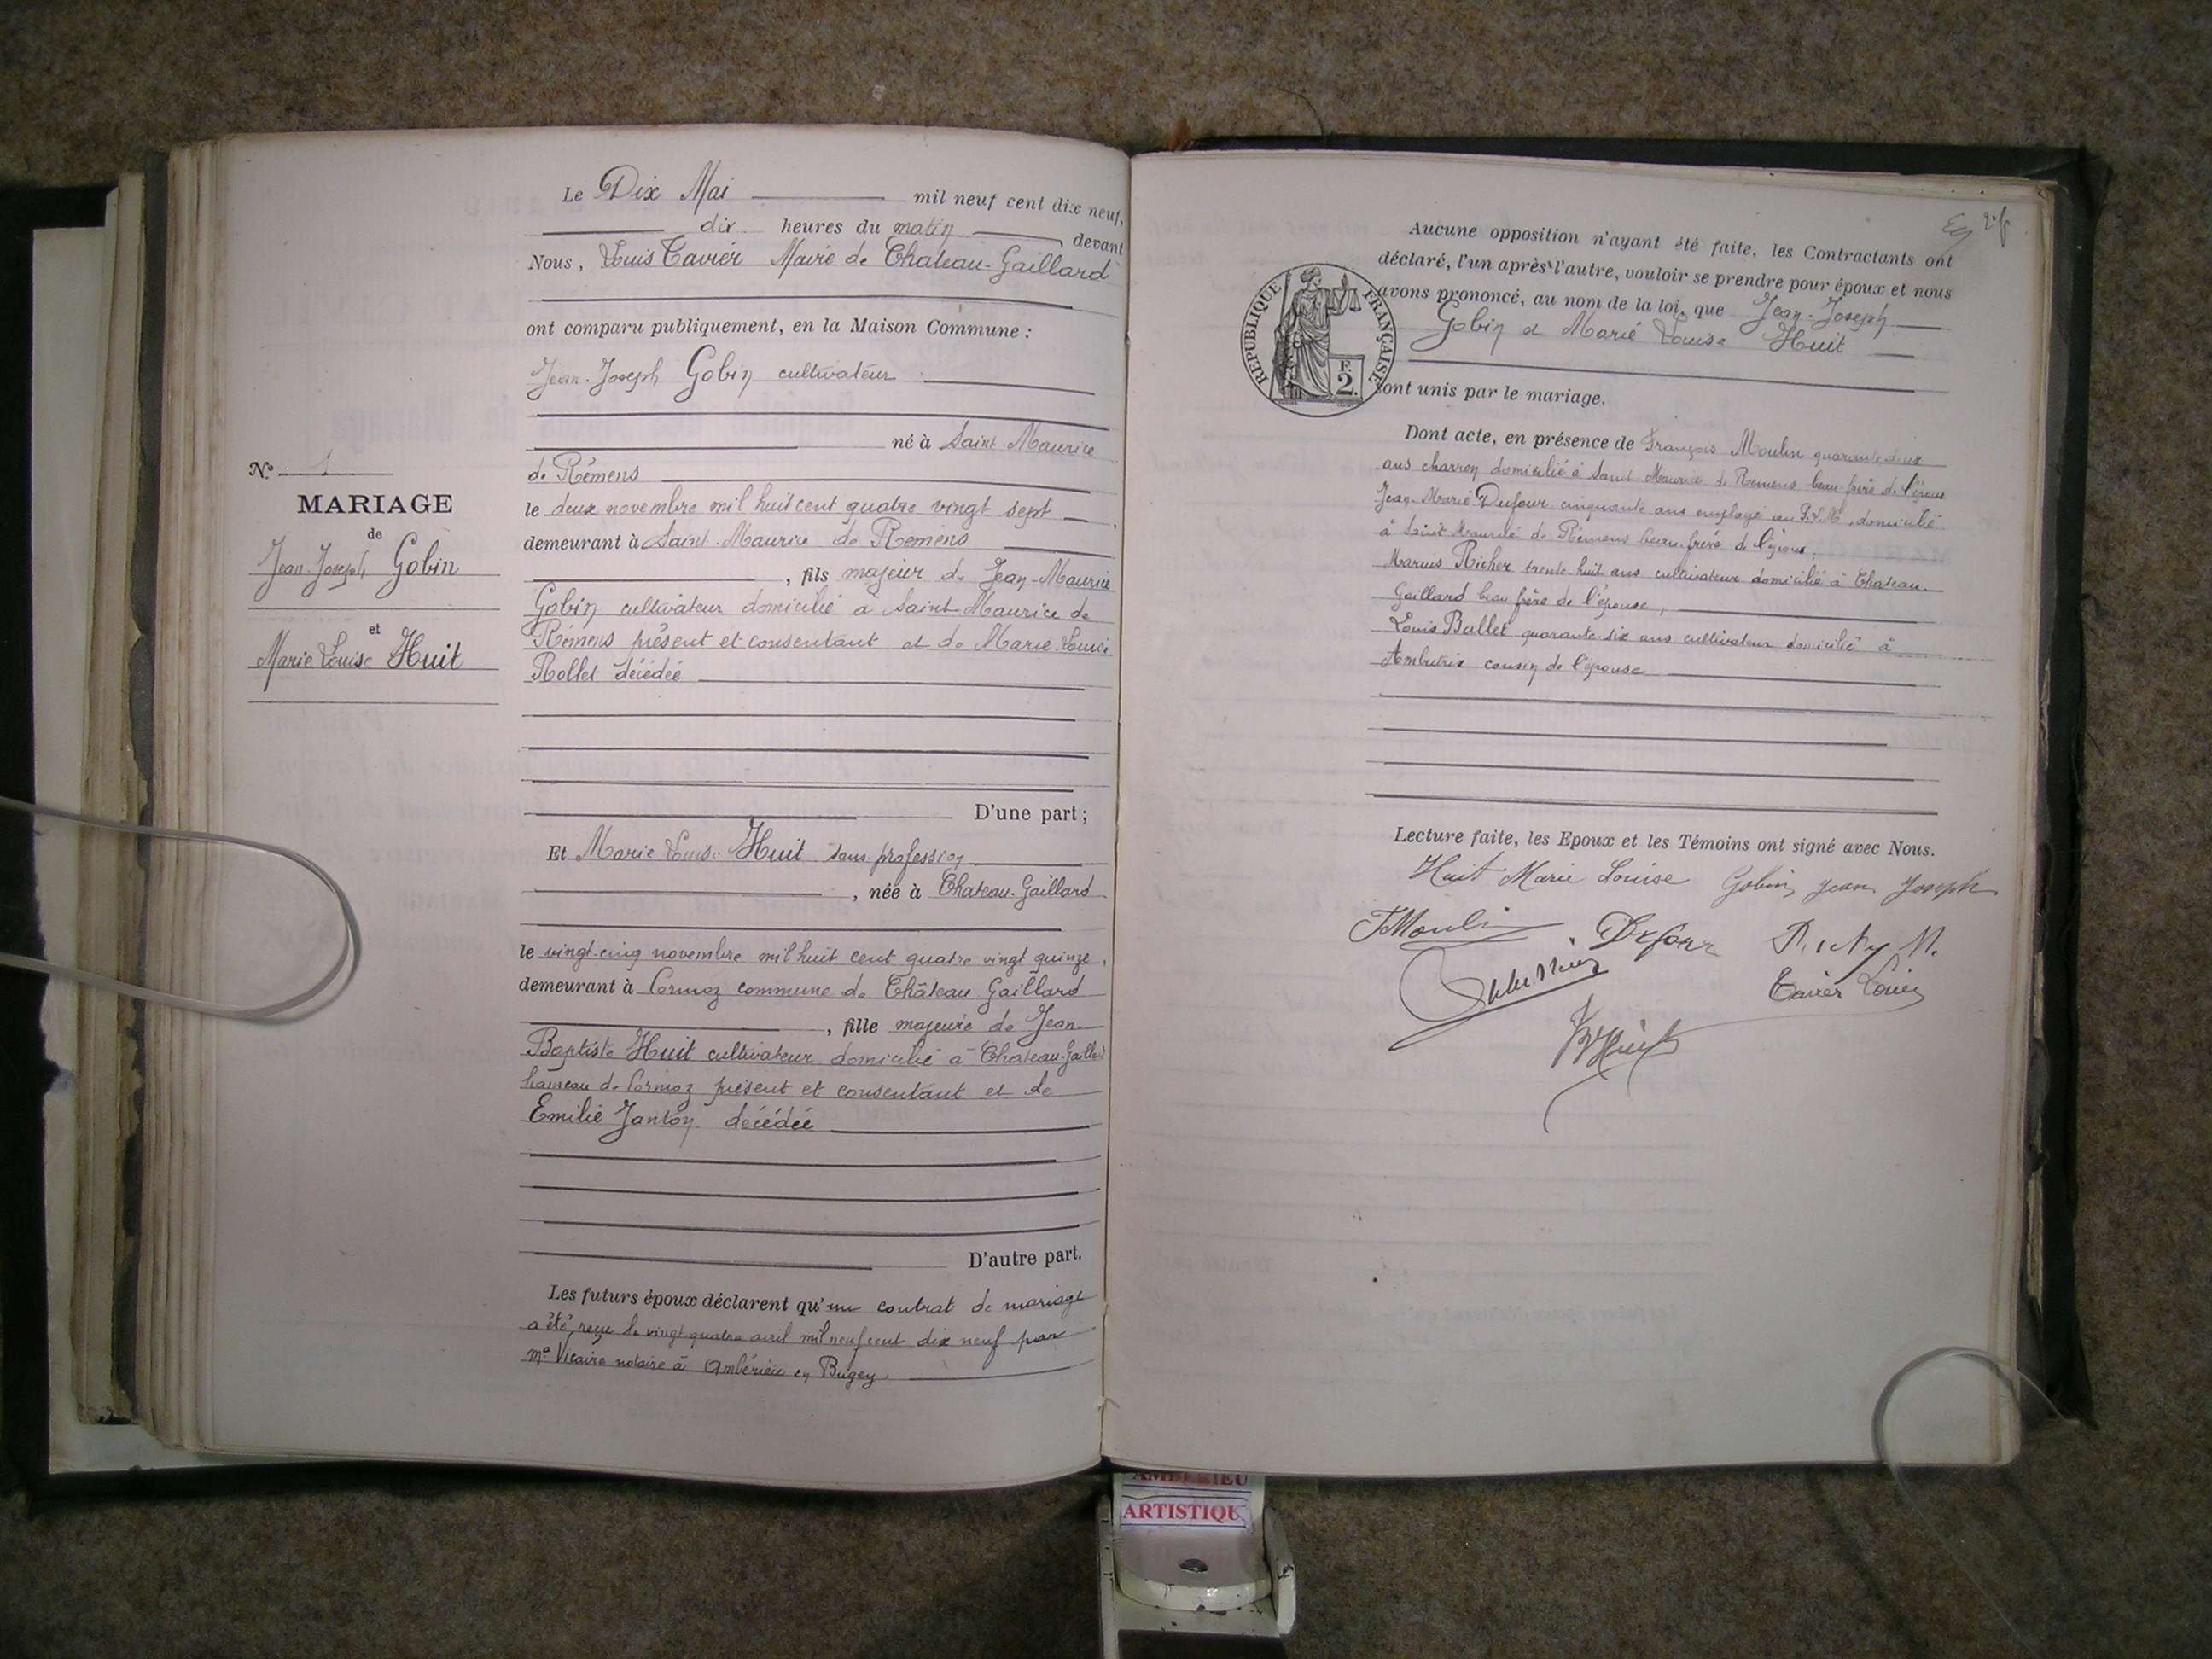 Le Dix Mai mil neuf cent dix neuf,
dix heures du matin, devant
Nous, Louis Tavier Maire de Chateau-Gaillard
ont comparu publiquement, en la Maison Commune :
Jean-Joseph Gobin cultivateur
né à Saint-Maurice
de Rémens
le deux novembre mil huit cent quatre vingt sept
demeurant à Saint-Maurice de Rémens
, fils majeur de Jean-Maurice
Gobin cultivateur domicilié à Saint-Maurice de
Rémens présent et consentant et de Marie-Louise
Rollet décédée
D'une part ;
Nº 1
MARIAGE
de
Jean-Joseph Gobin
et
Marie Louise Huit
Et Marie Louise Huit sans profession
, née à Chateau-Gaillard
le vingt-cinq novembre mil huit cent quatre vingt quinze,
demeurant à Cormoz commune de Château Gaillard
, fille majeure de Jean
Baptiste Huit cultivateur domicilié à Chateau-Gaillard
hameau de Cormoz présent et consentant et de
Emilie Janton décédée
D'autre part.
Les futurs époux déclarent qu'un contrat de mariage
a été reçu le vingt-quatre avril mil neuf cent dix neuf par
Me Vicaire notaire à Ambérieu en Bugey
Aucune opposition n'ayant été faite, les Contractants ont
déclaré, l'un après l'autre, vouloir se prendre pour époux et nous
avons prononcé, au nom de la loi, que Jean-Joseph
Gobin et Marie Louise Huit
sont unis par le mariage.
RÉPUBLIQUE FRANÇAISE
F.
2.
Dont acte, en présence de François Moulin quarante deux
ans charron domicilié à Saint Maurice de Rémens beau frère de l'époux
Jean-Marie Dufour cinquante ans employé au P.L.M. domicilié
à Saint Maurice de Rémens beau-frère de l'époux.
Marius Richer trente huit ans cultivateur domicilié à Chateau-
Gaillard beau frère de l'épouse,
Louis Ballet quarante-six ans cultivateur domicilié à
Ambutrix cousin de l'épouse
Lecture faite, les Epoux et les Témoins ont signé avec Nous.
Huit Marie Louise Gobin Jean Joseph
F Moulin Dufour
Tavier Louis
AMBERIEU
ARTISTIQU